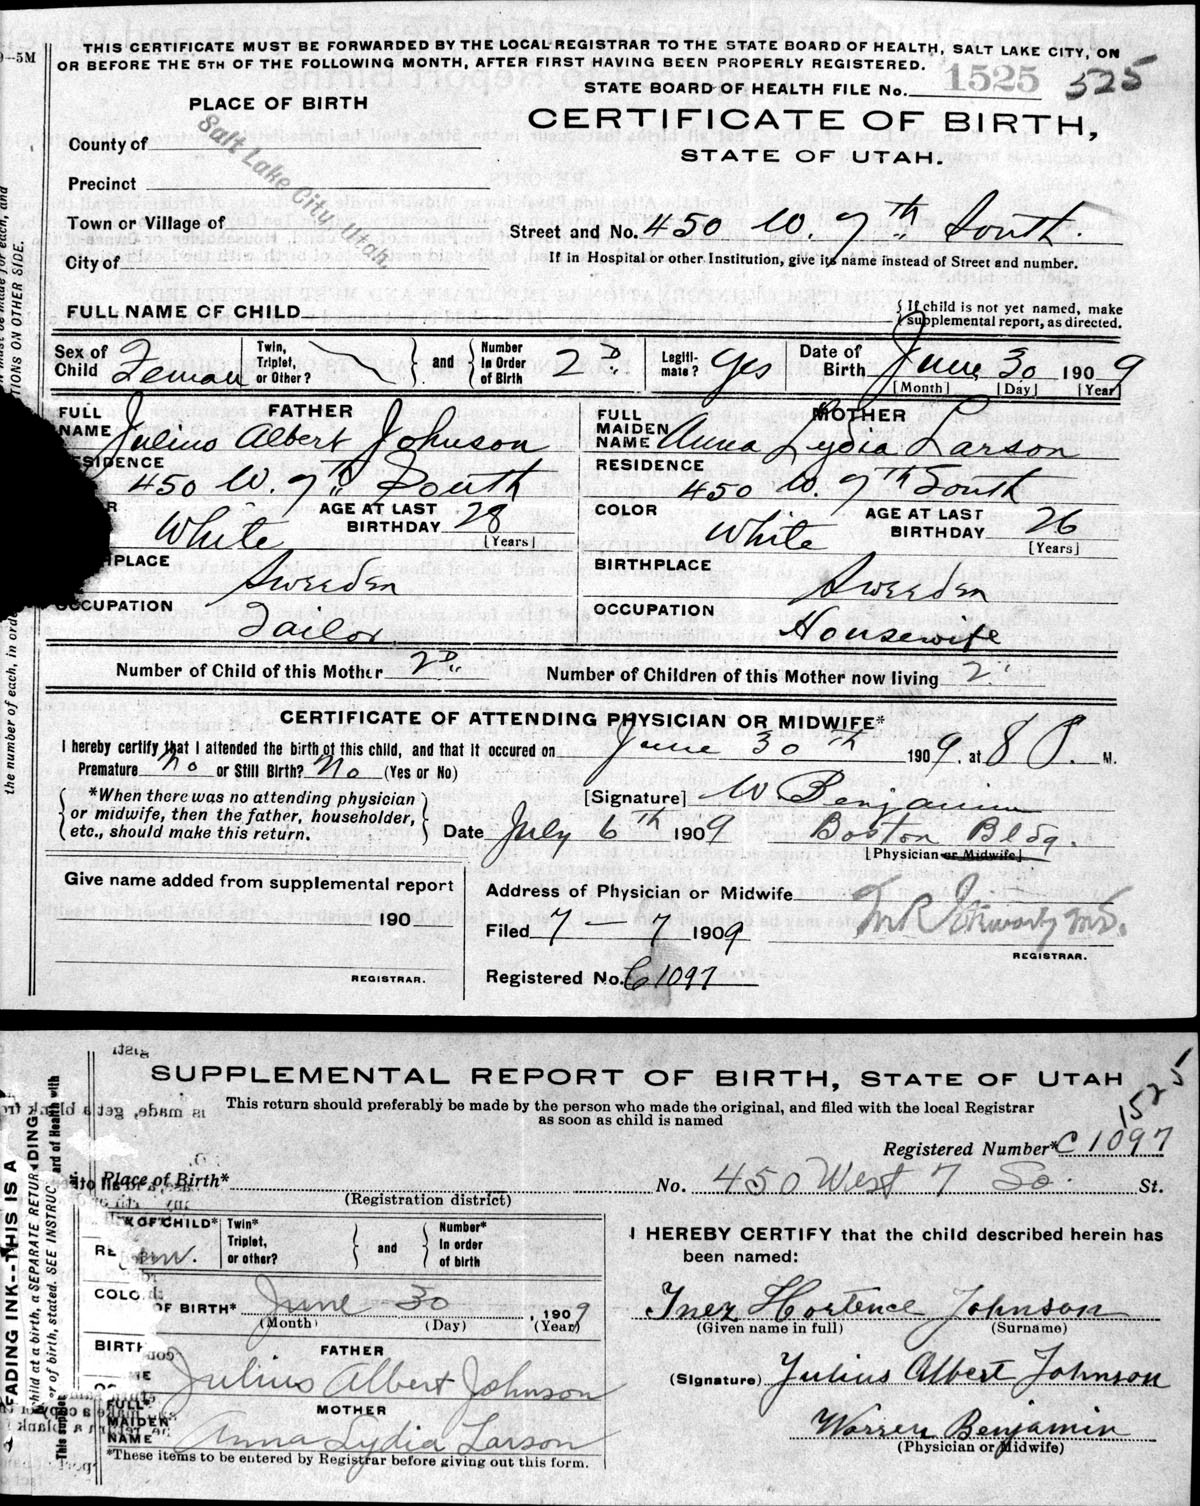 THIS CERTIFICATE MUST BE FORWARDED BY THE LOCAL REGISTRAR TO THE STATE BOARD OF HEALTH, SALT LAKE CITY, ON
OR BEFORE THE 5TH OF THE FOLLOWING MONTH, AFTER FIRST HAVING BEEN PROPERLY REGISTERED.
STATE BOARD OF HEALTH FILE No. 1525 525
PLACE OF BIRTH
CERTIFICATE OF BIRTH,
STATE OF UTAH.
County of
Precinct
Town or Village of
City of
Salt Lake City, Utah.
Street and No. 450 W. 7th South.
If in Hospital or other Institution, give its name instead of Street and number.
FULL NAME OF CHILD
{ If child is not yet named, make
supplemental report, as directed.
Sex of Child Female
Twin, Triplet, or Other? } and { Number In Order of Birth 2D
Legiti-mate? Yes
Date of Birth June 30 1909
[Month] [Day] [Year]
FATHER
FULL NAME Julius Albert Johnson
RESIDENCE
450 W. 7th South
White
AGE AT LAST BIRTHDAY 28
[Years]
HPLACE
Sweeden
OCCUPATION
Tailor
MOTHER
FULL MAIDEN NAME Anna Lydia Larson
RESIDENCE
450 W. 7th South
COLOR
White
AGE AT LAST BIRTHDAY 26
[Years]
BIRTHPLACE
Sweeden
OCCUPATION
Housewife
Number of Child of this Mother 2D
Number of Children of this Mother now living 2
CERTIFICATE OF ATTENDING PHYSICIAN OR MIDWIFE*
I hereby certify that I attended the birth of this child, and that it occured on June 30th 1909. at 8 P. M.
Premature No or Still Birth? No (Yes or No)
{ *When there was no attending physician
or midwife, then the father, householder,
etc., should make this return. }
[Signature] W Benjamin
Date July 6th 1909
Boston Bldg.
[Physician or Midwife]
Give name added from supplemental report
190
REGISTRAR.
Address of Physician or Midwife
Filed 7 - 7 1909
REGISTRAR.
Registered No. C 1097
SUPPLEMENTAL REPORT OF BIRTH, STATE OF UTAH
This return should preferably be made by the person who made the original, and filed with the local Registrar
as soon as child is named
1525
Registered Number* C 1097
Place of Birth*
(Registration district)
No. 450 West 7 So. St.
X OF CHILD*
Twin* Triplet, or other? } and { Number* In order of birth
OF BIRTH* June 30, 1909
(Month) (Day) (Year)
FATHER
Julius Albert Johnson
MOTHER
FULL* MAIDEN NAME Anna Lydia Larson
*These items to be entered by Registrar before giving out this form.
I HEREBY CERTIFY that the child described herein has
been named:
Inez Hortence Johnson
(Given name in full) (Surname)
(Signature) Julius Albert Johnson
Warren Benjamin
(Physician or Midwife)